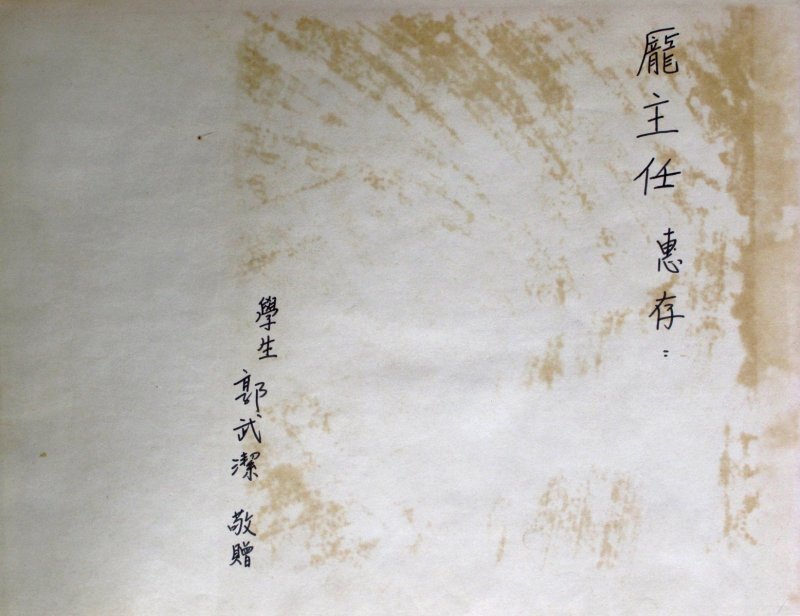 龎主任 惠存：
學生 郭武潔 敬贈